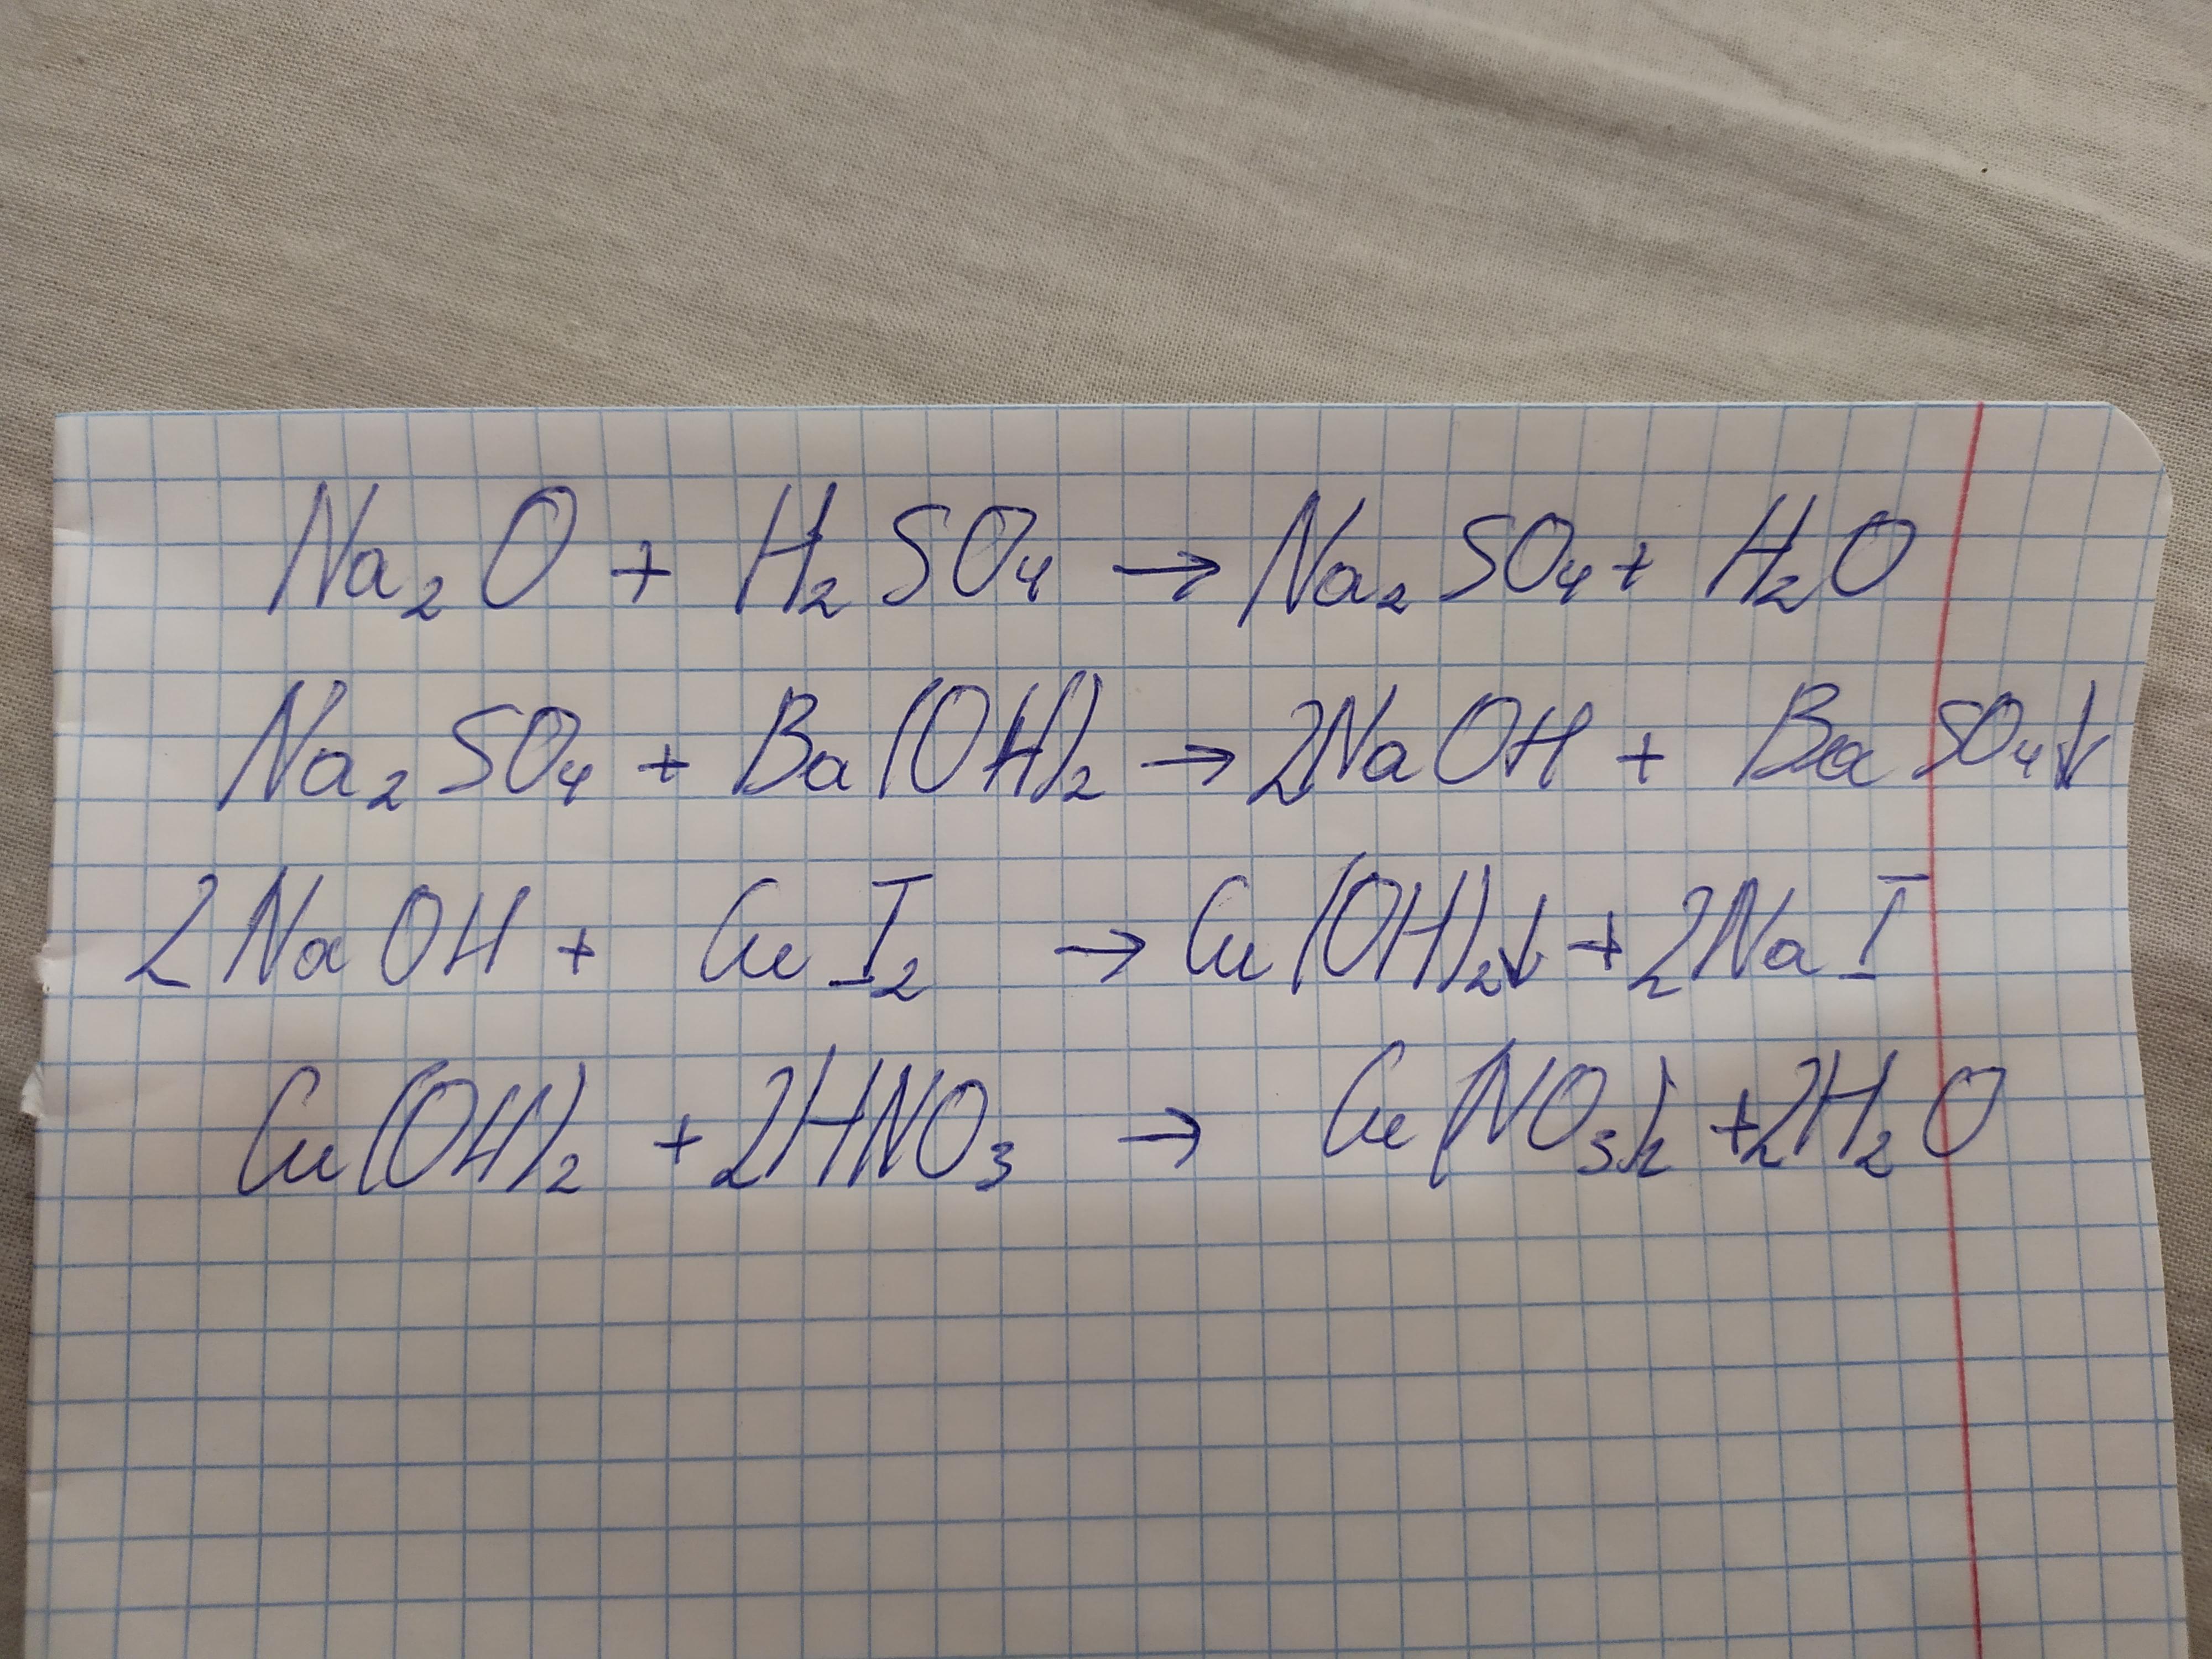 Na₂O + H₂SO₄ → Na₂SO₄ + H₂O
Na₂SO₄ + Ba(OH)₂ → 2NaOH + BaSO₄↓
2NaOH + CuI₂ → Cu(OH)₂↓ + 2NaI
Cu(OH)₂ + 2HNO₃ → Cu(NO₃)₂ + 2H₂O